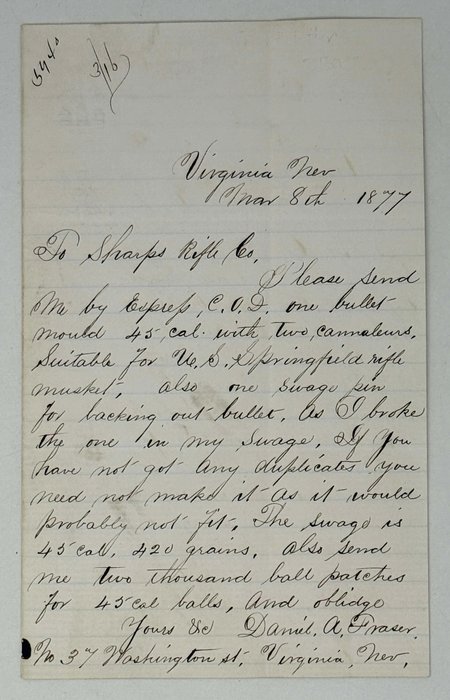 3/16
Virginia Nev
Mar 8th 1877
To Sharps Rifle Co.
Please send
Me by Express, C.O.D. one bullet
mould 45 cal. with two cannaleurs.
Suitable for U.S. Springfield rifle
musket, also one swage pin
for backing out bullet, as I broke
the one in my swage. If you
have not got any duplicates you
need not make it as it would
probably not fit. The swage is
45 cal. 420 grains. also send
me two thousand ball patches
for 45 cal balls, and oblidge
Yours &c Daniel. A. Fraser.
No 37 Washington st. Virginia, Nev.